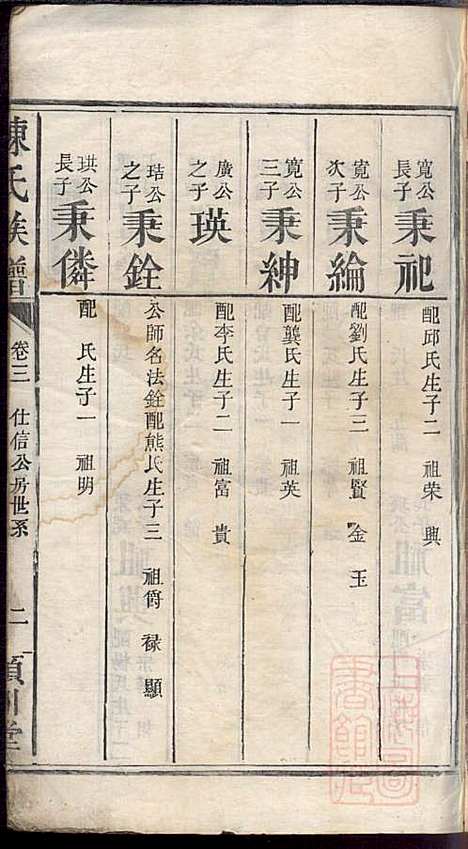 寬公長子 秉祀 配邱氏生子二 祖榮 興
寬公次子 秉綸 配劉氏生子三 祖賢 金 玉
寬公三子 秉紳 配龔氏生子一 祖英
廣公之子 瑛 配李氏生子二 祖富 貴
琣公之子 秉銓 公師名法銓配熊氏生子三 祖爵 祿 顯
珙公長子 秉僯 配 氏生子一 祖明
陳氏族譜 卷三 仕信公房世系 二 潁川堂